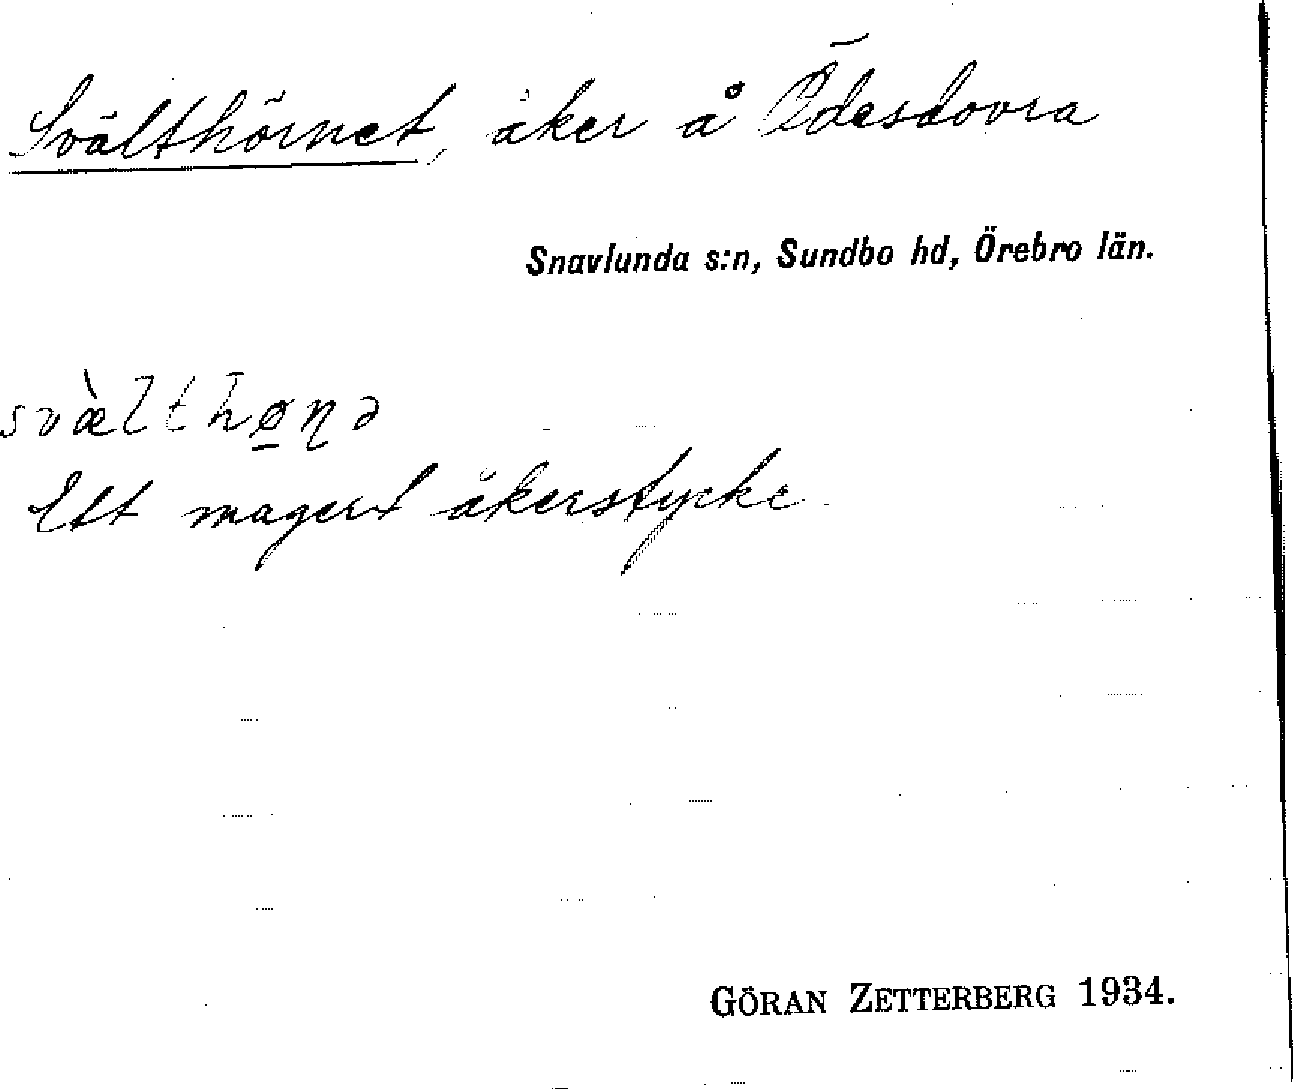 Svälthörnet, åker å Ödesdovra
Snavlunda s:n, Sundbo hd, Örebro län.
svæ̀ltho̱ɳə
Ett magert åkerstycke
GÖRAN ZETTERBERG 1934.